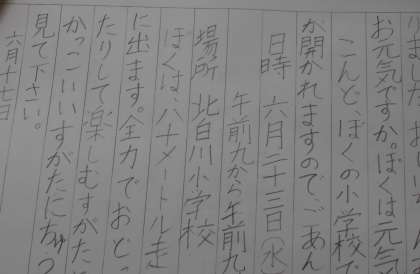 お元気ですか。ぼくは元気
こんど、ぼくの小学校で
が開かれますので、ごあん
日時 六月二十三日(水
午前九から午前九
場所 北白川小学校
ぼくは、八十メートル走
に出ます。全力でおどっ
たりして楽しむすがた
かっこいいすがたにちゅ
見て下さい。
六月十七日